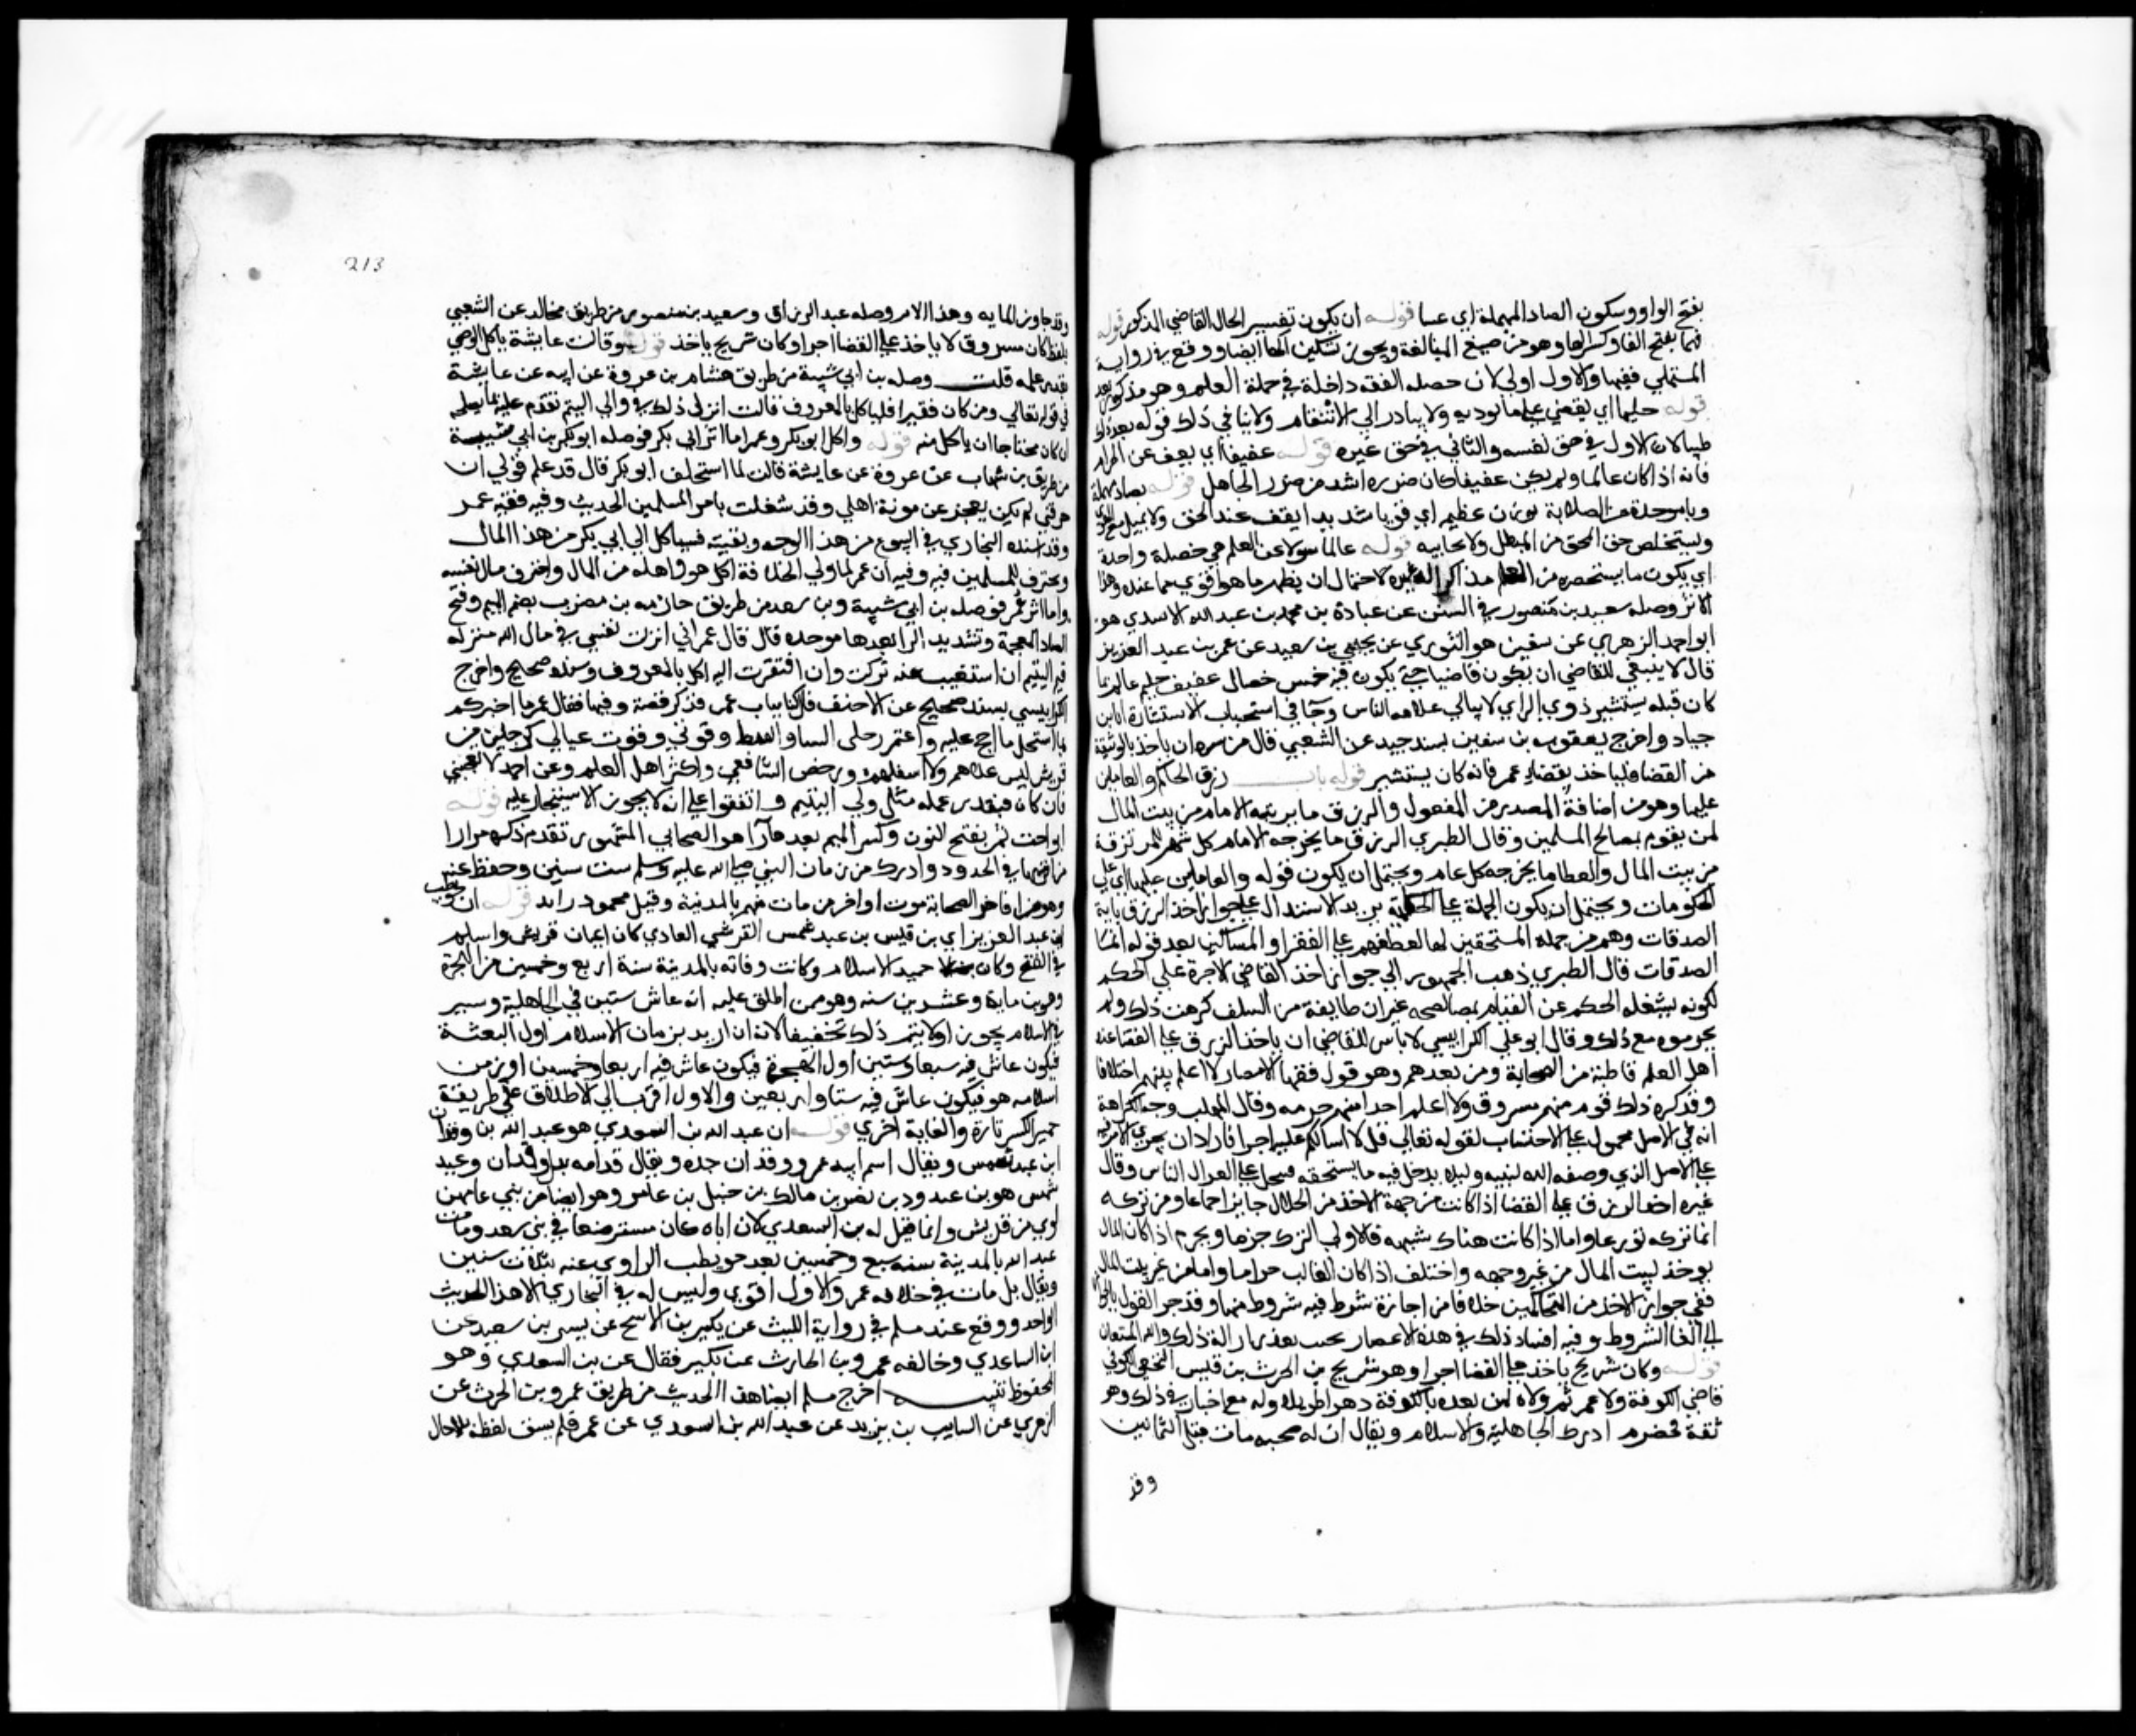 بفتح الواو وسكون الصاد المهملة اي عسا قوله ان يكون تفسير الحال القاضي المذكور قوله
فهما بفتح الفا وكسر الها وهو من صيغ المبالغة ويجوز تسكين الها ايضا ووقع في رواية
المستملي فقيها والاول اولي لان خصلة الفقه داخلة في خصلة العلم وهو مذكور بعد
قوله حليما اي يغضي علي ما يوذيه ولا يبادر الي الانتقام ولا ينافي ذلك قوله بعد ذلك
صليبا لان الاول في حق نفسه والثاني في حق غيره قوله عفيفا اي يعف عن الحرام
فانه اذا كان عالما ولم يكن عفيفا كان ضرره اشد من ضرر الجاهل قوله بصاد مهملة
وبا موحدة من الصلابة بوزن عظيم اي قويا شديدا يقف عند الحق ولا يميل مع الهوي
ويستخلص حق المحق من المبطل ولا يحابيه قوله عالما سولا عن العلم هي خصلة واحدة
اي يكون ما يستحضره من العلم مذاكرا له غيره لاحتمال ان يظهر ما هو اقوي مما عنده وهذا
الاثر وصله سعيد بن منصور في السنن عن عبادة بن محمد بن عبد الله الاسدي هو
ابو احمد الزهري عن سفين هو الثوري عن يحيي بن سعيد عن عمر بن عبد العزيز
قال لا ينبغي للقاضي ان يكون قاضيا حتي يكون فيه خمس خصال عفيف حليم عالم بما
كان قبله يستشير ذوي الراي لا يبالي علامه الناس وجا في استحباب الاستشارة اثار
جياد واخرج يعقوب بن سفين بسند جيد عن الشعبي قال من سره ان ياخذ بالوثيقة
من القضا فلياخذ بقضا عمر فانه كان يستشير قوله باب رزق الحاكم والعاملين
عليها وهو من اضافة المصدر من المفعول والرزق ما يرتبه الامام من بيت المال
لمن يقوم بمصالح المسلمين وقال الطبري الرزق ما يخرجه الامام كل شهر للمرتزقة
من بيت المال والعطا ما يخرجه كل عام ويحتمل ان يكون قوله والعاملين عليها اي علي
الحكومات ويحتمل ان يكون الجملة علي الحكاية يريد الاستدلال علي جواز اخذ الرزق باية
الصدقات وهم من جملة المستحقين لها لعطفهم علي الفقرا والمساكين بعد قوله انما
الصدقات قال الطبري ذهب الجمهور الي جواز اخذ القاضي الاجرة علي الحكم
لكونه يشغله الحكم عن القيام بمصالحه غير ان طايفة من السلف كرهت ذلك ولم
يحرموه مع ذلك وقال ابو علي الكرابيسي لا باس للقاضي ان ياخذ الرزق علي القضا عند
اهل العلم قاطبة من الصحابة ومن بعدهم وهو قول فقها الامصار لا اعلم بينهم اختلافا
وقد كره ذلك قوم منهم مسروق ولا اعلم احدا منهم حرمه وقال المهلب وجه الكراهة
انه في الاصل محمول علي الاحتساب لقوله تعالي قل لا اسالكم عليه اجرا فارادان يجري الامر فيه
علي الاصل الذي وصفه الله لنبيه وليلا يدخل فيه ما يستحقه فيحل علي اموال الناس وقال
غيره اخذ الرزق علي القضا اذا كانت من جهة الاخذ من الحلال جايزا اجماعا ومن تركه
انما تركه تورعا واما اذا كانت هناك شبهه فالاولي الترك جزما ويحرم اذا كان المال
يوخذ لبيت المال من غير وجهه واختلف اذا كان الغالب حراما واما من غير بيت المال
ففي جواز الاخذ من المتحاكمين خلاف من اجازة شرط فيه شروط منها وقد جر القول بالجواز
الي الغا الشروط وفيه افساد ذلك في هذه الاعصار بحيث يعذر ازالة ذلك والله المستعان
قوله وكان شريح ياخذ علي القضا اجرا وهو شريح بن الحرث بن قيس النخعي الكوفي
قاضي الكوفة ولاه عمر ثم ولاه لمن بعده بالكوفة دهرا طويلا وله مع اخبار في ذلك وهو
ثقة مخضرم ادرك الجاهلية والاسلام ويقال ان له صحبه مات قبل الثمانين
وقد
213
وقد جاوز الماية وهذا الامر وصله عبد الرزاق وسعيد بن منصور من طريق مخالد عن الشعبي
بلفظ كان مسروق لا ياخذ علي القضا اجرا وكان شريح ياخذ قوله وقالت عايشة ياكل الوصي
بقدر عمله قلت وصله بن ابي شيبة من طريق هشام بن عروة عن ابيه عن عايشة
في قوله تعالي ومن كان فقيرا فلياكل بالمعروف قالت انزل ذلك في والي اليتم تقدم عليه بما يصلحه
ان كان محتاجا ان ياكل منه قوله واكل ابو بكر وعمر اما اثر ابي بكر فوصله ابو بكر بن ابي شيبة
من طريق بن شهاب عن عروة عن عايشة قالت لما استخلف ابو بكر قال قد علم قولي ان
حرفتي لم تكن يعجز عن مونة اهلي وقد شغلت بامر المسلمين الحديث وفيه قصة عمر
وقد اسنده البخاري في البيوع من هذا الوجه وبقيته فسياكل ال ابي بكر من هذا المال
ويحترف للمسلمين فيه وفيه ان عمر لما ولي الخلافة اكل هو واهله من المال واحترف مال نفسه
واما اثر عمر فوصله بن ابي شيبة وبن سعد من طريق حارثه بن مضرب بضم الميم وفتح
الضاد المعجمة وتشديد الرا بعدها موحدة قال قال عمر اني انزلت نفسي في مال الله منزله
قيم اليتيم ان استغنيت عنه تركت وان افتقرت اليه اكل بالمعروف وسنده صحيح واخرج
الكرابيسي بسند صحيح عن الاحنف قال كنا بباب عمر فذكر قصة وفيها فقال عمر ما اخبركم
بما استحل ما احج عليه واعتمر وحلتي الشتا والقيظ وقوتي وقوت عيالي كرجل من
قريش ليس علاهم ولا اسفلهم ورخص الشافعي واكثر اهل العلم وعن احمد لا تعجبني
فان كان فبقدر عمله مثل ولي اليتيم واتفقوا علي انه لا يجوز الاستيجار عليه قوله
ابو اخت نمر بفتح النون وكسر الميم بعدها را هو الصحابي المشهور تقدم ذكره مرارا
من اقربها في الحدود وادرك من زمان النبي صلي الله عليه وسلم ست سنين وحفظ عنه
وهو من اواخر الصحابة موت اواخر من مات منهم بالمدينة وقيل محمود را بد قوله ان حويطب
ابن عبد العزيز اي بن قيس بن عبد شمس القرشي العادي كان اعيان قريش واسلم
في الفتح وكان حميد الاسلام وكانت وفاته بالمدينة سنة اربع وخمسين من الهجرة
وهو بن ماية وعشرين سنه وهو ممن اطلق عليه انه عاش ستين في الجاهلية وستين
في الاسلام يجوز اولا يتم ذلك تحقيقا لانه ان اريد بزمان الاسلام اول البعثة
فيكون عاش فيه سبعا وستين اول الهجرة فيكون عاش فيه اربعا وخمسين او زمن
اسلامه هو فيكون عاش فيه ستا واربعين والاول اقرب الي الاطلاق علي طريقة
جبر الكسر تارة والغاية اخري قوله ان عبد الله بن السعدي هو عبد الله بن وقدان
ابن عبد شمس ويقال اسم ابيه عمرو وقدان جده ويقال قدامه بدل وقدان وعبد
شمس هو بن عبد ود بن نصر بن مالك بن حنبل بن عامر وهو ايضا من بني عامر بن
لوي من قريش وانما قيل له بن السعدي لان اباه كان مسترضعا في بني سعد ومات
عبد الله بالمدينة سنه سبع وخمسين بعد حويطب الراوي عنه بثلاث سنين
ويقال بل مات في خلافه عمر والاول اقوي وليس له في البخاري الا هذا الحديث
الواحد ووقع عند مسلم في رواية الليث عن بكير بن الاشج عن بسر بن سعيد عن
ابن الساعدي وخالفه عمرو بن الحارث عن بكير فقال عن بن السعدي وهو
المحفوظ تنبيه اخرج مسلم ايضا هذا الحديث من طريق عمرو بن الحرث عن
الزهري عن السايب بن يزيد عن عبد الله بن السعدي عن عمر فلم يسق لفظه بل احال